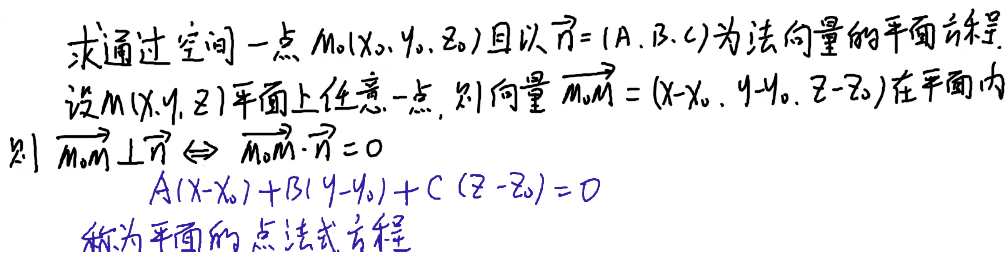 求通过空间一点 M₀(X₀, Y₀, Z₀)且以 \vec{n}=(A.B.C)为法向量的平面方程.
设M(X,Y,Z)平面上任意一点,则向量 \overrightarrow{M₀M}=(X-X₀, Y-Y₀, Z-Z₀)在平面内
则 \overrightarrow{M₀M}⊥\vec{n} ⇔ \overrightarrow{M₀M}·\vec{n}=0
A(X-X₀)+B(Y-Y₀)+C(Z-Z₀)=0
称为平面的点法式方程